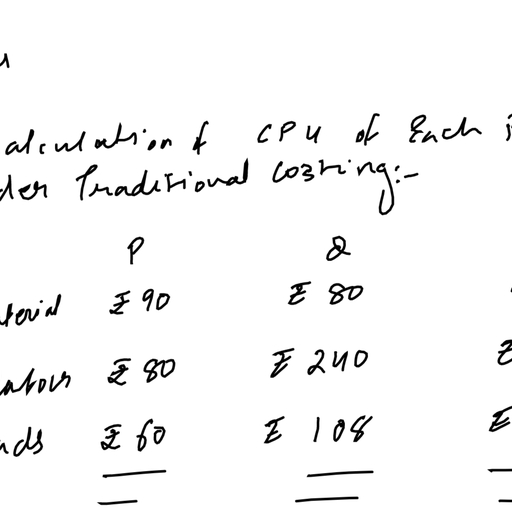 alculation of CPU of Each
der Traditional Costing:-
P Q
terial ₹ 90 ₹ 80
₹ 80 ₹ 240 ₹
ads ₹ 60 ₹ 108 ₹